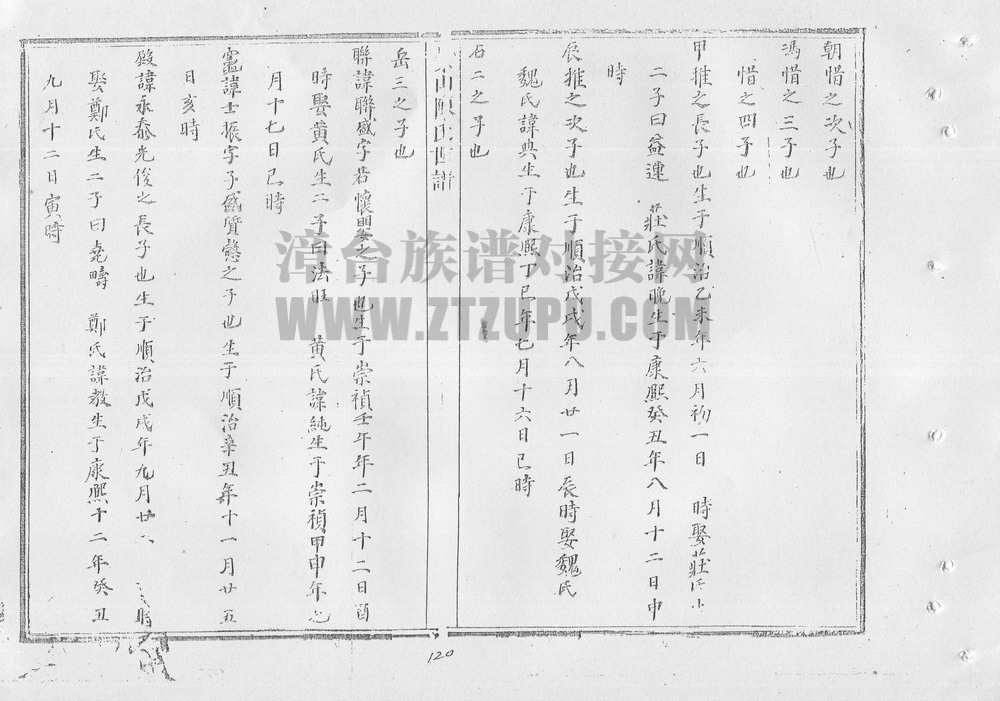 朝惜之次子也
馮惜之三子也
惜之四子也
甲推之長子也生于順治乙未年六月初一日 時娶莊氏生
二子曰益連 莊氏諱晚生于康熙癸丑年八月十二日申
時
辰推之次子也生于順治戊戌年八月廿一日辰時娶魏氏
魏氏諱典生于康熙丁巳年七月十六日巳時
石二之子也
陳氏世譜
岳三之子也
聯諱聯盛字若懷嬰之子也生于崇禎壬午年二月十二日酉
時娶黃氏生二子曰法旺 黃氏諱純生于崇禎甲申年
月十七日巳時
諱士振字子盛贊之子也生于順治辛丑年十一月廿五
日亥時
殷諱承泰光俊之長子也生于順治戊戌年九月廿 時
娶鄭氏生二子曰堯疇 鄭氏諱教生于康熙十二年癸丑
九月十二日寅時
120
漳台族谱对接网
WWW.ZTZUPU.COM